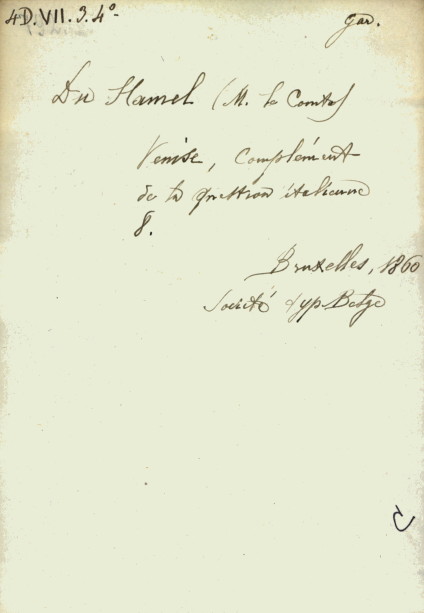 4D.VII.3.4°-
gar.
Du Hamel (M. le Comte)
Venise, Complément
de la question italienne
8.
Bruxelles, 1860
Société typ Belge